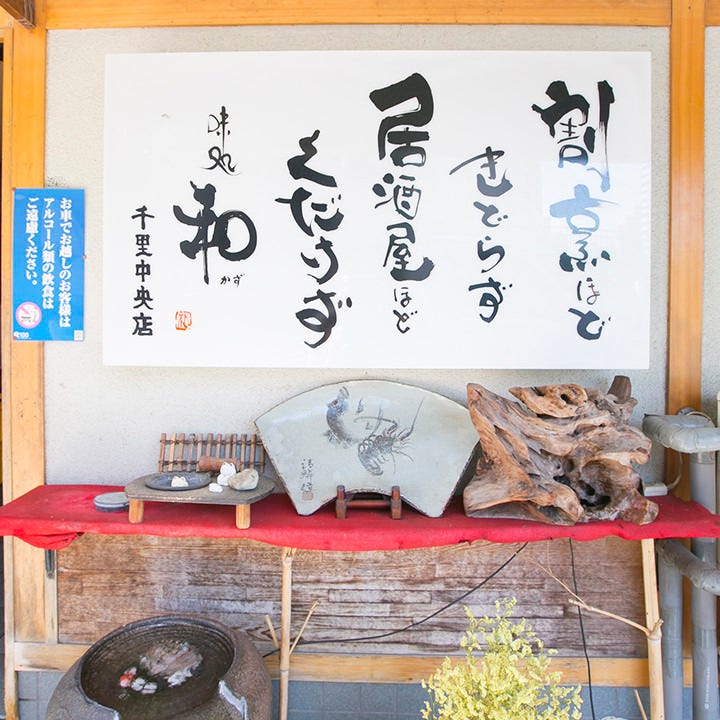 割烹ほど
きどらず
居酒屋ほど
くだけず
味処
和
かず
千里中央店
お車でお越しのお客様は
アルコール類の飲食は
ご遠慮ください。